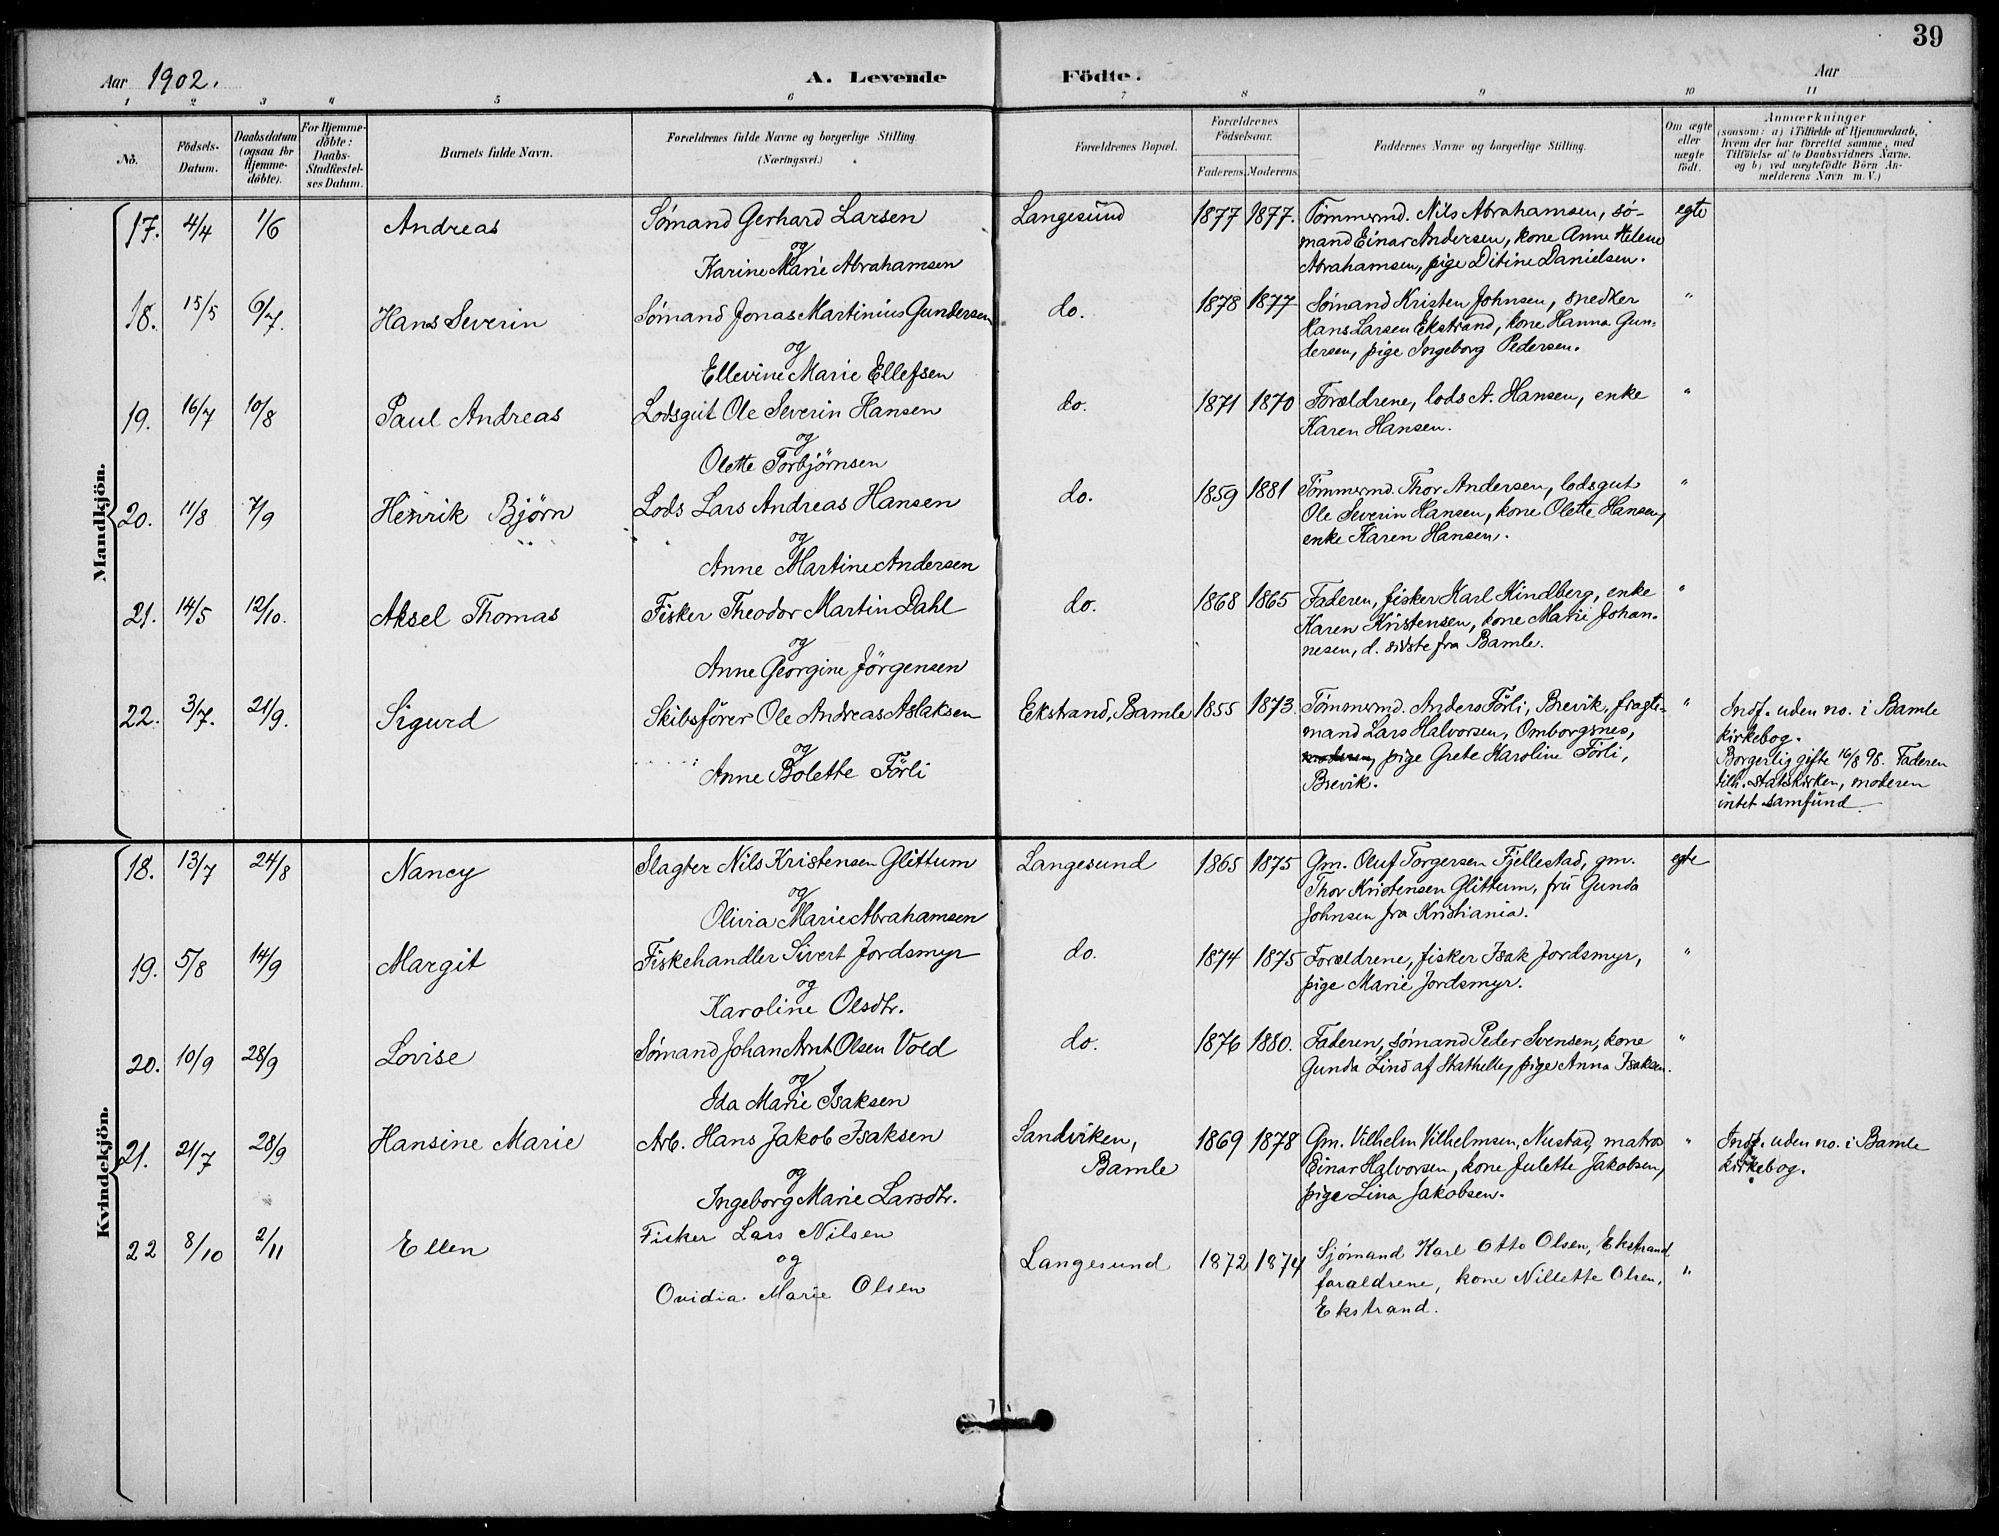 39
Aar 1902.
A. Levende Födte.
Aar
1 2 3 4 5 6 7 8 9 10 11
No.
Födsels-Datum.
Daabsdatum (ogsaa for Hjemme-döbte).
For Hjemme-döbte: Daabs-Stadfæstel-ses Datum.
Barnets fulde Navn.
Forældrenes fulde Navne og borgerlige Stilling.
(Næringsvei.)
Forældrenes Bopæl.
Forældrenes Födselsaar.
Faderens. Moderens.
Faddernes Navne og borgerlige Stilling.
Om ægte eller uægte födt.
Anmærkninger
(saasom: a) i Tilfælde af Hjemmedaab,
hvem der har forrettet samme, med
Tilföielse af to Daabsvidners Navne.
og b) ved uægtefödte Börn An-
melderens Navn m. V.)
Mandkjön.
17. 4/4 1/6 Andreas Sømand Gerhard Larsen Langesund 1877 1877. Tømmermd. Nils Abrahamsen, sø- egte
og mand Einar Andersen, kone Anne Helene
Karine Marie Abrahamsen Abrahamsen, pige Ditine Danielsen.
18. 15/5 6/7. Hans Severin Sømand Jonas Martinius Gundersen do. 1878 1877 Sømand Kristen Johnsen, snedker "
og Hans Larsen Ekstrand, kone Hanna Gun-
Ellevine Marie Ellefsen dersen, pige Ingeborg Pedersen.
19. 16/7 10/8 Paul Andreas Lodsgut Ole Severin Hansen do. 1871 1870 Forældrene, lods A. Hansen, enke "
og Karen Hansen.
Olette Torbjørnsen
20. 11/8 7/9 Henrik Bjørn Lods Lars Andreas Hansen do. 1859 1881 Tømmermd. Thor Andersen, lodsgut "
og Ole Severin Hansen, kone Olette Hansen,
Anne Martine Andersen enke Karen Hansen.
21. 14/5 12/10. Aksel Thomas Fisker Theodor Martin Dahl do. 1868 1865 Faderen, fisker Karl Kindberg, enke "
og Karen Kristensen, kone Marie Johan-
Anne Georgine Jörgensen nesen, d. sidste fra Bamle.
22. 3/7. 21/9. Sigurd Skibsfører Ole Andreas Aslaksen Ekstrand, Bamle 1855 1873. Tømmermd. Anders Förli, Brevik, fragte- " Indf. uden no. i Bamle
og mand Lars Halvorsen, Omborgsnes, kirkebog.
Anne Bolette Förli moderen, pige Grete Karoline Förli, Borgerlig gifte 16/8 98. Faderen
Brevik. tilh. statskirken, moderen
intet samfund
Kvindekjön.
18. 13/7 24/8 Nancy Slagter Nils Kristensen Glittum Langesund 1865 1875 Gm. Oluf Torgersen Fjellestad, gm. egte
og Thor Kristensen Glittum, frü Gunda
Olivia Marie Abrahamsen Johnsen fra Kristiania.
19. 5/8 14/9 Margit Fiskehandler Sivert Jordsmyr do. 1874 1875 Forældrene, fisker Isak Jordsmyr, "
og pige Marie Jordsmyr.
Karoline Olsdtr.
20. 10/9 28/9 Lovise Sømand Johan Arnt Olsen Vold do. 1876 1880. Faderen, sømand Peder Svensen, kone "
og Gunda Lind af Stathelle, pige Anna Isaksen.
Ida Marie Isaksen
21. 21/7 28/9 Hansine Marie Arb. Hans Jakob Isaksen Sandviken, 1869 1878 Gm. Vilhelm Vilhelmsen, Nustad, matros " Indf. uden no. i Bamle
og Bamle Einar Halvorsen, kone Julette Jakobsen, kirkebog.
Ingeborg Marie Larsdtr. pige Lina Jakobsen.
22 8/10 2/11 Ellen Fisker Lars Nilsen Langesund 1872 1874 Sjømand Karl Otto Olsen, Ekstrand
og foraldrene, kone Nillette Olsen, "
Ovidia Marie Olsen Ekstrand.